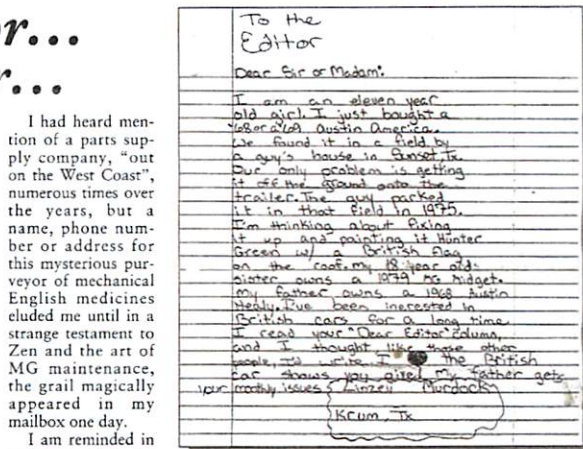 r...
r...
I had heard men-
tion of a parts sup-
ply company, "out
on the West Coast",
numerous times over
the years, but a
name, phone num-
ber or address for
this mysterious pur-
veyor of mechanical
English medicines
eluded me until in a
strange testament to
Zen and the art of
MG maintenance,
the grail magically
appeared in my
mailbox one day.
I am reminded in
To the
Editor
Dear Sir or Madam:
I am an eleven year
old girl. I just bought a
'68 or a '69 Austin America.
We found it in a field by
a guy's house in Sunset, Tx.
Our only problem is getting
it off the ground onto the
trailer. The guy parked
it in that field in 1975.
I'm thinking about fixing
it up and painting it Hunter
Green w/ a British flag
on the roof. My 18 year old
sister owns a 1979 MG Midget.
My father owns a 1968 Austin
Healy. I've been inerested in
British cars for a long time
I read your "Dear Editor" column,
and I thought like those other
people, I'd write. I ♥ the British
car shows you My father gets
your monthly issues. Linzey Murdock
Krum, Tx